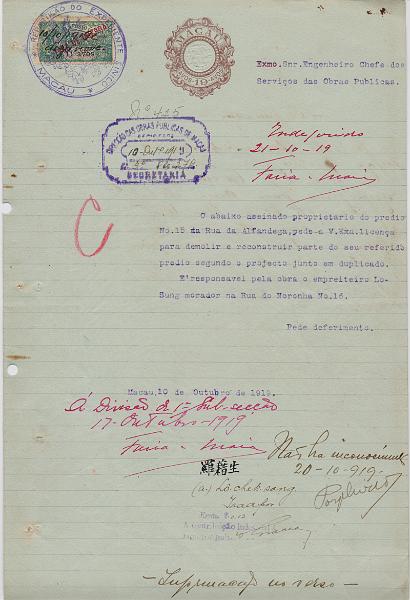 REPARTIÇÃO DO EXPEDIENTE SINICO
MACAU
MACAU
19
Exmo.Snr.Engenheiro Chefe dos
Serviços das Obras Publicas.
Nº 425
DIRECÇÃO DAS OBRAS PUBLICAS DE MACAU
SECRETARIA
Indeferido
21-10-19
Faria e Maia
C
O abaixo assinado proprietario do predio
No.15 da Rua da Alfandega,pede a V.Exa.licença
para demolir e reconstruir parte do seu referido
predio segundo o projecto junto em duplicado.
E'responsavel pela obra o empreiteiro Lo-
Sung morador na Rua do Noronha No.16.
Pede deferimento.
Macau,10 de Outubro de 1919.
Á Divisão de 1ª Sub-secção
17-Outubro-1919
Faria e Maia
Não ha inconveniente
20-10-919-
羅藉生
(a) Lo-chek-sang
- Informação no verso -